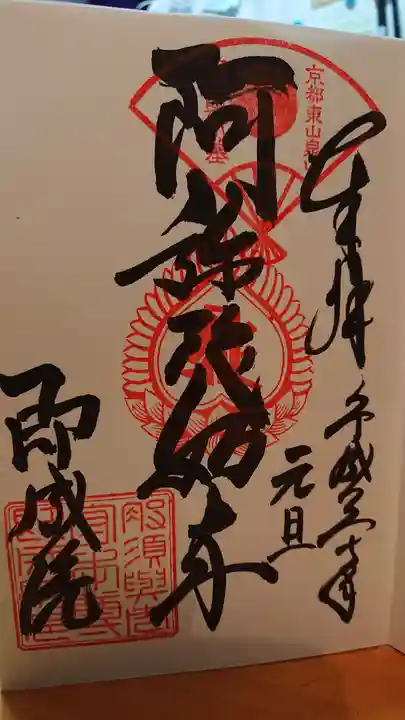 奉拝
平成三十年
元旦
京都東山泉
阿弥陀如来
即成院
那須與市